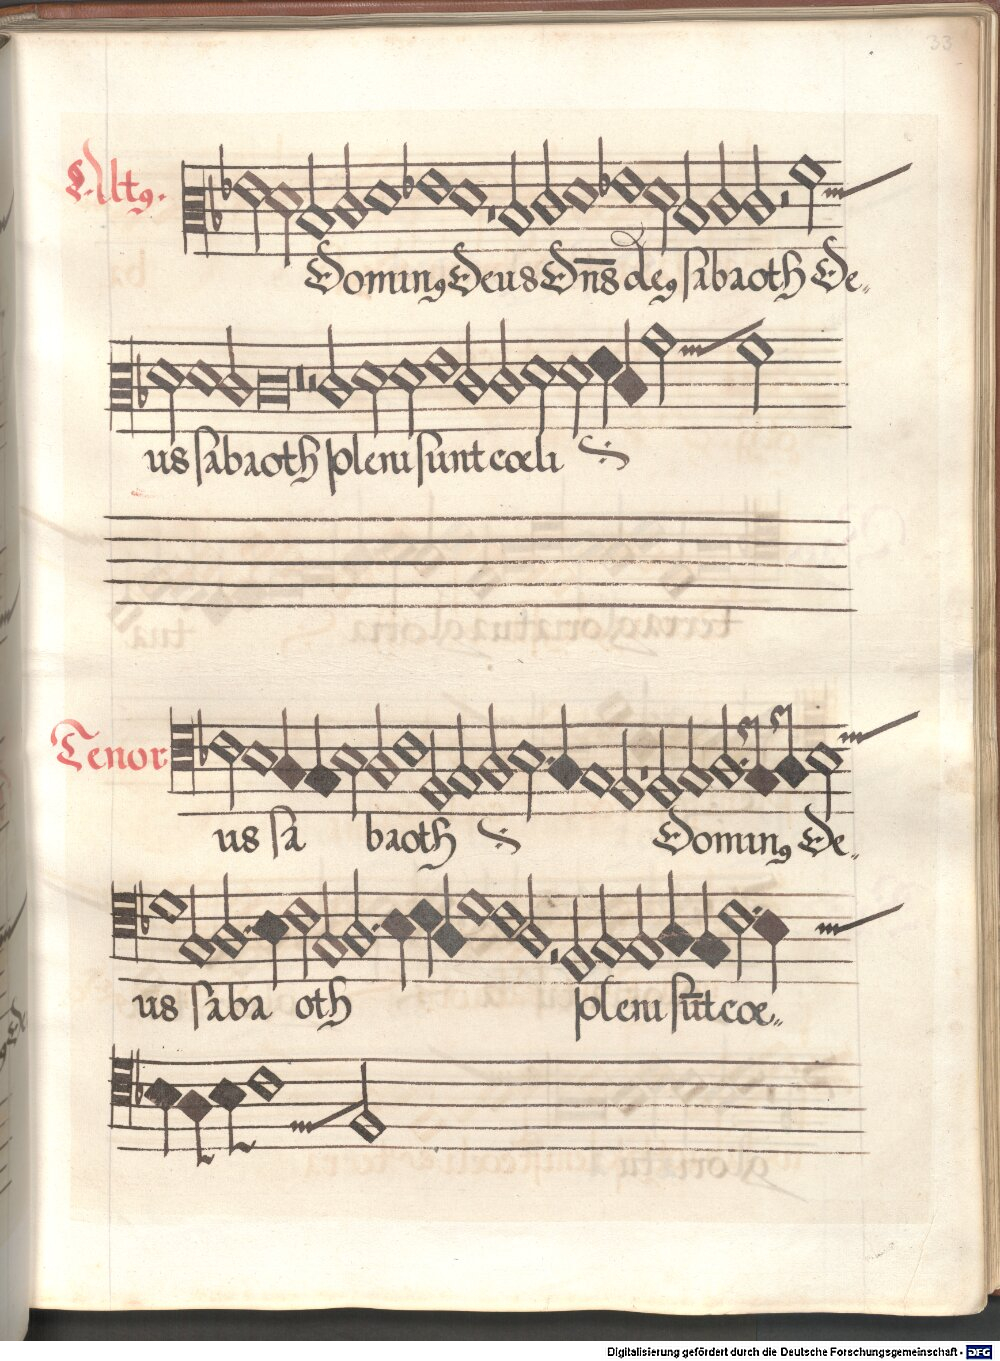 33
Altꝰ.
Dominꝰ Deus Dn̄s deꝰ sabaoth De„
us sabaoth pleni sunt cœli
Tenor
us sa baoth Dominꝰ De„
us saba oth pleni sūt cœ„
Digitalisierung gefördert durch die Deutsche Forschungsgemeinschaft - DFG